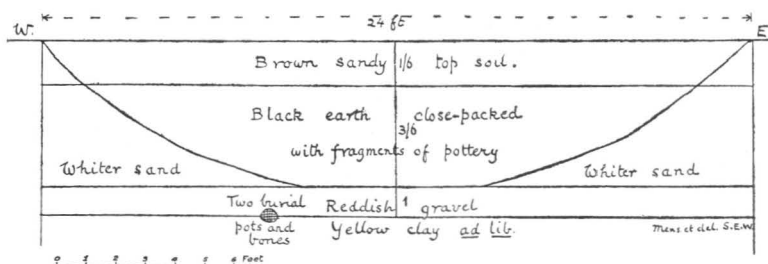 24 ft
W. E
Brown sandy 1/6 top soil.
Black earth close-packed
3/6
with fragments of pottery
Whiter sand Whiter sand
Two burial Reddish 1 gravel
pots and Yellow clay ad lib. Mens et del. S.E.W.
bones
0 1 2 3 4 5 6 Feet